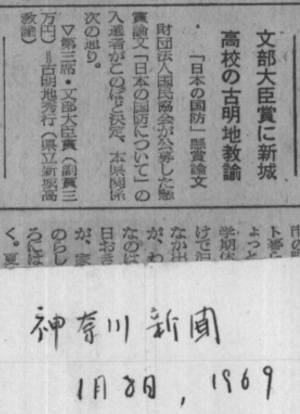 文部大臣賞に新城
高校の古明地教諭
「日本の国防」懸賞論文
財団法人国民協会が公募した懸
賞論文「日本の国防について」の
入選者がこのほど決定、本県関係
次の通り。
▽第三席・文部大臣賞（副賞三
万円）＝古明地秀行（県立新城高
教諭）
学期休
けで沢
なか出
が、わ
なのは
日おき
が、家
のらし
ろには
く。夏
神奈川新聞
1月8日, 1969